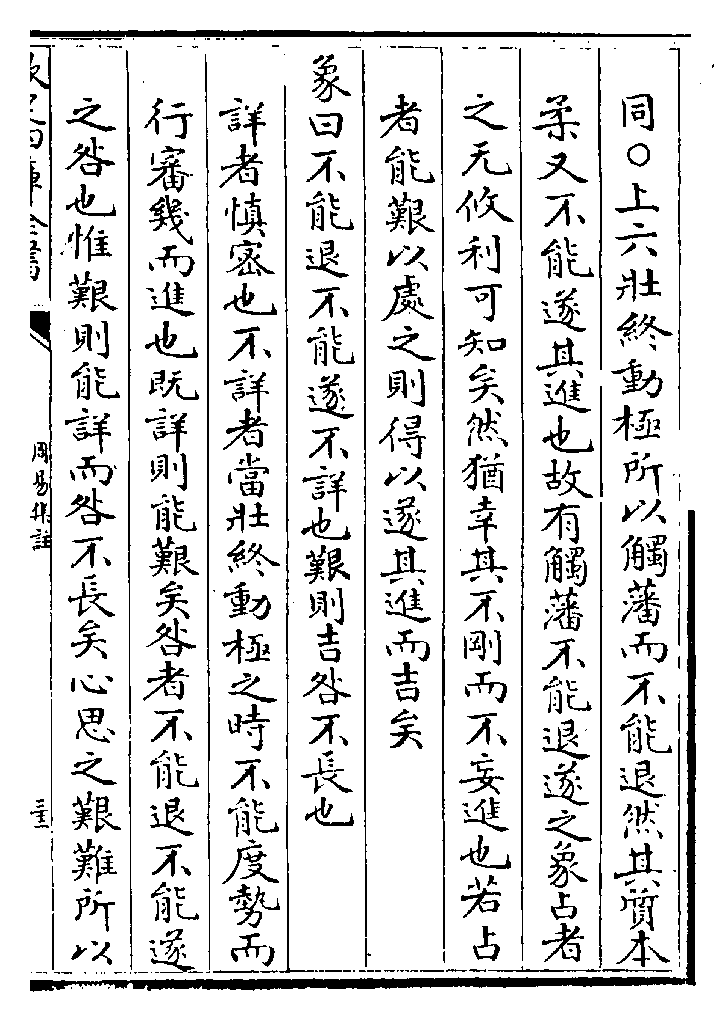 同○上六壯終動極所以觸藩而不能退然其質本
柔又不能遂其進也故有觸藩不能退遂之象占者
之无攸利可知矣然猶幸其不剛而不妄進也若占
者能艱以處之則得以遂其進而吉矣
象曰不能退不能遂不詳也艱則吉咎不長也
詳者慎密也不詳者當壯終動極之時不能度勢而
行審幾而進也既詳則能艱矣咎者不能退不能遂
之咎也惟艱則能詳而咎不長矣心思之艱難所以
周易集註